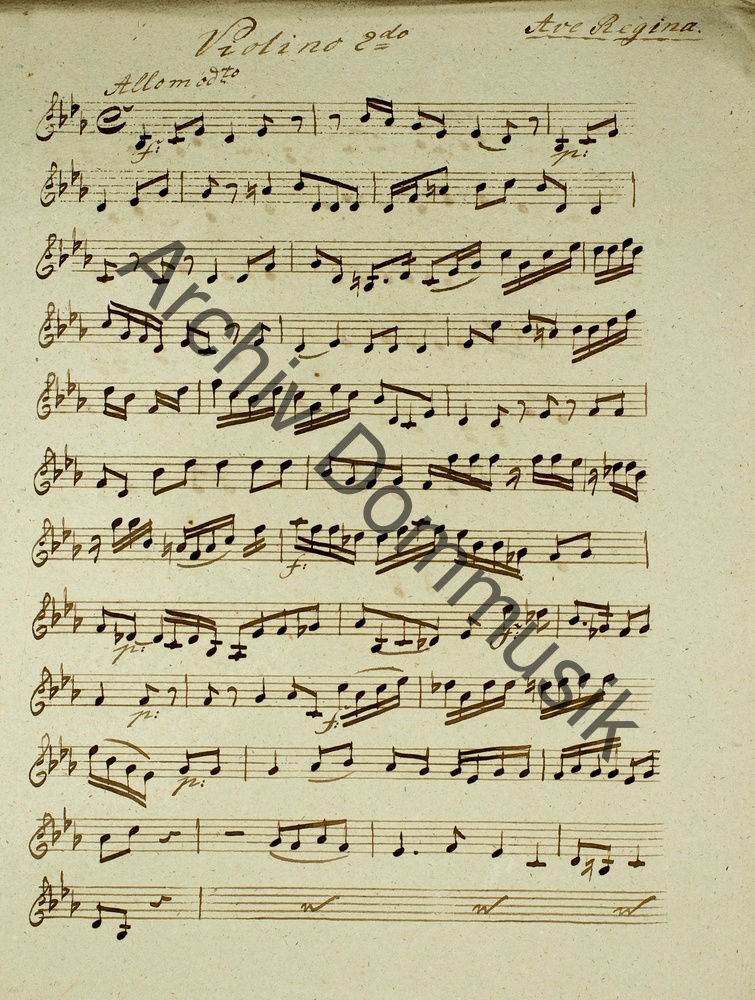 Violino 2do
Ave Regina.
Allo modto
f:
p:
p:
f:
p:
f:
p:
Archiv Dommusik